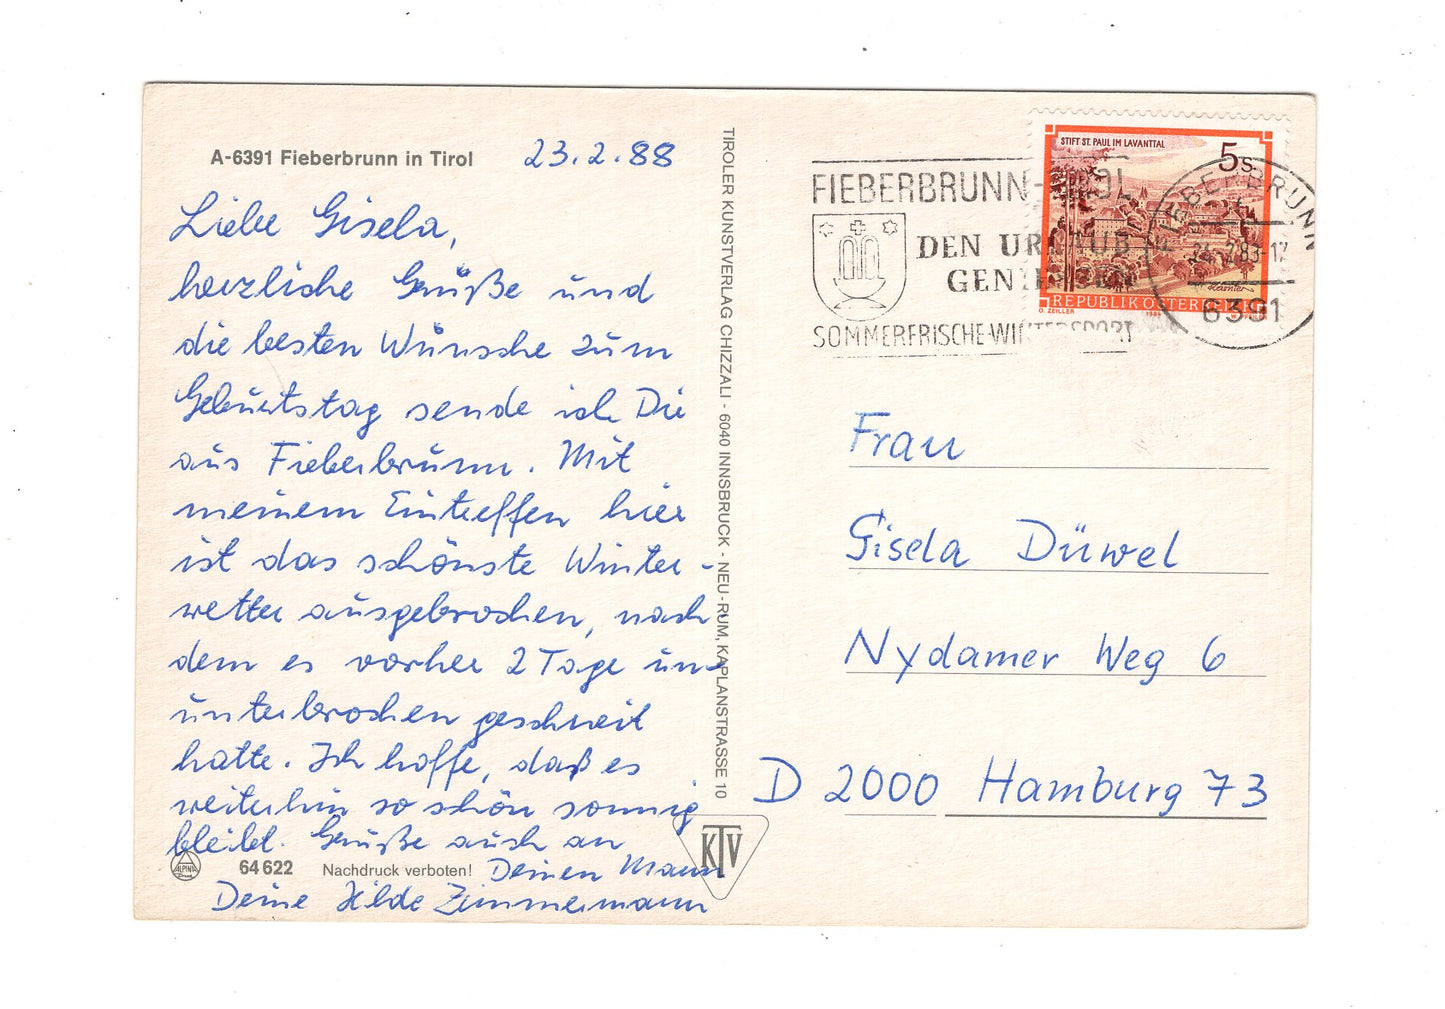 A-6391 Fieberbrunn in Tirol
23.2.88
Liebe Gisela,
herzliche Grüße und
die besten Wünsche zum
Geburtstag sende ich Dir
aus Fieberbrunn. Mit
meinem Eintreffen hier
ist das schönste Winter-
wetter ausgebrochen, nach
dem es vorher 2 Tage un-
unterbrochen geschneit
hatte. Ich hoffe, daß es
weiterhin so schön sonnig
bleibt. Grüße auch an
Deinen Mann
Deine Hilde Zimmermann
ALPINA
64 622
Nachdruck verboten!
TIROLER KUNSTVERLAG CHIZZALI - 6040 INNSBRUCK - NEU-RUM, KAPLANSTRASSE 10
KTV
FIEBERBRUNN-TIROL
DEN URLAUB
GENIESSEN
SOMMERFRISCHE-WINTERSPORT
STIFT ST. PAUL IM LAVANTTAL
5s
REPUBLIK ÖSTERREICH
O. ZEILLER
FIEBERBRUNN
6391
Frau
Gisela Düwel
Nydamer Weg 6
D 2000 Hamburg 73